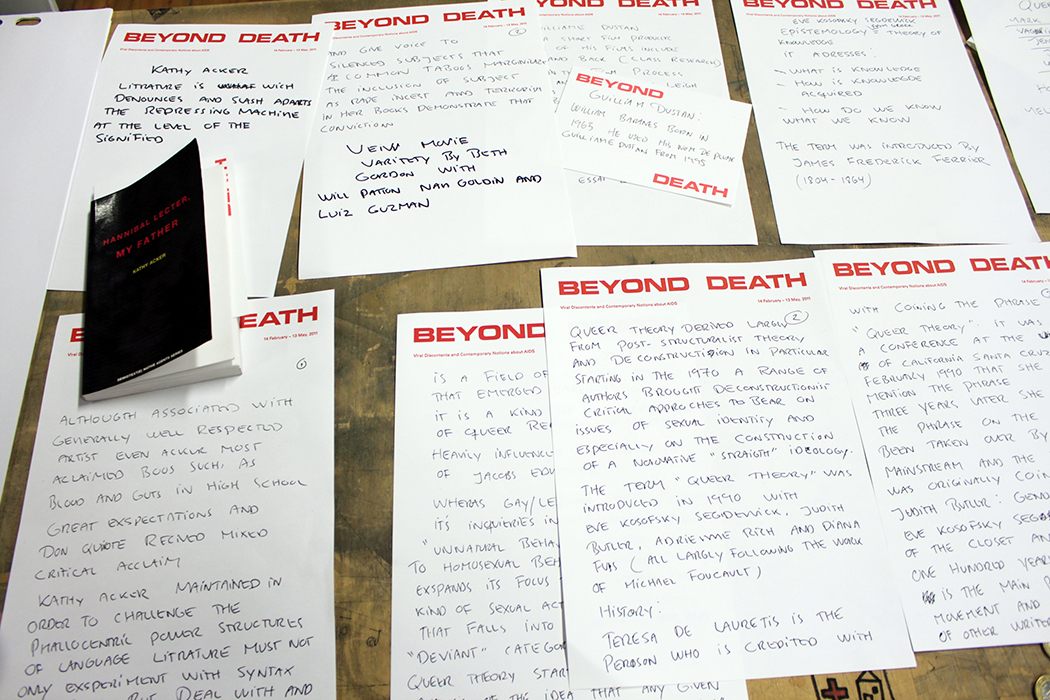 BEYOND DEATH
Viral Discontents and Contemporary Notions about AIDS
14 February – 13 May, 2011
KATHY ACKER
LITRATURE IS WITH
DENOUNCES AND SLASH APARTS
THE REPRESSING MACHINE
AT THE LEVEL OF THE
SIGNIFIED
HANNIBAL LECTER,
MY FATHER
KATHY ACKER
SEMIOTEXT(E) NATIVE AGENTS SERIES
BEYOND DEATH
14 February – 13 May, 2011
AND GIVE VOICE TO
SILENCED SUBJECTS THAT
COMMON TABOS MARGINALIZ
THE INCLUSION OF SUBJECT
AS RAPE INCEST AND TERRORISM
IN HER BOOKS DEMONSTRATE THAT
CONVICTION
VEIWS MOVIE
VARITETY BY BETH
GORDON WITH
WILL PATTON NAN GOLDIN AND
LUIZ GUZMAN
BEYOND DEATH
DUSTAN
SHORT FILM PRODUCER
OF HIS FILMS INCLUDE
AND BACK (CLASS RESEARCH)
PROCESS
LEIGH
ESSAI
BEYOND
GUILLIAM DUSTAN:
WILLIAM BARANES BORN IN
1965 HE USED HIS NOM DE PLUME
GUILLIAME DUSTAN FROM 1995
DEATH
BEYOND DEATH
EVE KOSOFSKY SEGDEWICK
EPISTEMOLOGY = THEORY OF
KNOWLEDGE
FROM GREEK
IT ADRESSES:
- WHAT IS KNOWLEDGE
- HOW IS KNOWLEDGE
ACQUIRED
- HOW DO WE KNOW
WHAT WE KNOW
THE TERM WAS INTRODUCED BY
JAMES FREDERICK FERRIER
(1804 - 1864)
QUEER
MARK
EATH
14 February – 13 May, 2011
1
ALTHOUGH ASSOCIATED WITH
GENERALLY WELL RESPECTED
ARTIST EVEN ACKER MOST
ACLAIMED BOOS SUCH, AS
BLOOD AND GUTS IN HIGH SCHOOL
GREAT EXSPECTATIONS AND
DON QUIOTE RECIVED MIXED
CRITICAL ACCLAIM
KATHY ACKER MAINTAINED IN
ORDER TO CHALLENGE THE
PHALLOCENTRIC POWER STRUCTURES
OF LANGUAGE LITRATURE MUST NOT
ONLY EXSPERIMENT WITH SYNTAX
BUT DEAL WITH AND
BEYOND
Viral Discontents and Contemporary Notions about AIDS
IS A FIELD OF
THAT EMERGED
IT IS A KIND
OF QUEER RE
HEAVILY INFLUENC
OF JACOBS EDU
WHERAS GAY/LE
IT'S INQUIERIES IN
"UNNATURAL BEHA
TO HOMOSEXUAL BEH
EXSPANDS ITS FOCUS
KIND OF SEXUAL ACT
THAT FALLS INTO
"DEVIANT" CATEGO
QUEER THEORY STAR
OF THE IDEA THAT ANY GIVEN
BEYOND DEATH
Viral Discontents and Contemporary Notions about AIDS
14 February – 13 May, 2011
2
QUEER THEORY DERIVED LARGLY
FROM POST-STRUCTURALIST THEORY
AND DECONSTRUCTION IN PARTICULAR
STARTING IN THE 1970 A RANGE OF
AUTHORS BROGGHT DECONSTRUCTIONIST
CRITICAL APPROCHES TO BEAR ON
ISSUES OF SEXUAL IDENTITY AND
ESPECIALLY ON THE CONSTRUCTION
OF A NORMATIVE "STRAIGHT" IDEOLOGY.
THE TERM "QUEER THEORY" WAS
INTRODUCED IN 1990 WITH
EVE KOSOFSKY SEGIDEWICK, JUDITH
BUTLER, ADRIENNE RICH AND DIANA
FUAS (ALL LARGLY FOLLOWING THE WORK
OF MICHAEL FOUCAULT)
HISTORY:
TERESA DE LAURETIS IS THE
PERSON WHO IS CREDITED WITH
BEYOND DEATH
Viral Discontents and Contemporary Notions about AIDS
14 Februar
WITH COINING THE PHRASE
"QUEER THEORY". IT WAS
A CONFERENCE AT THE
OF CALIFORNIA SANTA CRUZ
FEBRUARY 1990 THAT SHE
MENTION THE PHRASE
THREE YEARS LATER SHE
THE PHRASE ON THE
BEEN TAKEN OVER BY
MAINSTREAM AND THE
WAS ORIGINALLY COIN
JUDITH BUTLER: GEND
EVE KOSOFSKY SEGD
OF THE CLOSET AN
ONE HUNDRED YEAR
IS THE MAIN P
MOVEMENT AND
OF OTHER WRITER